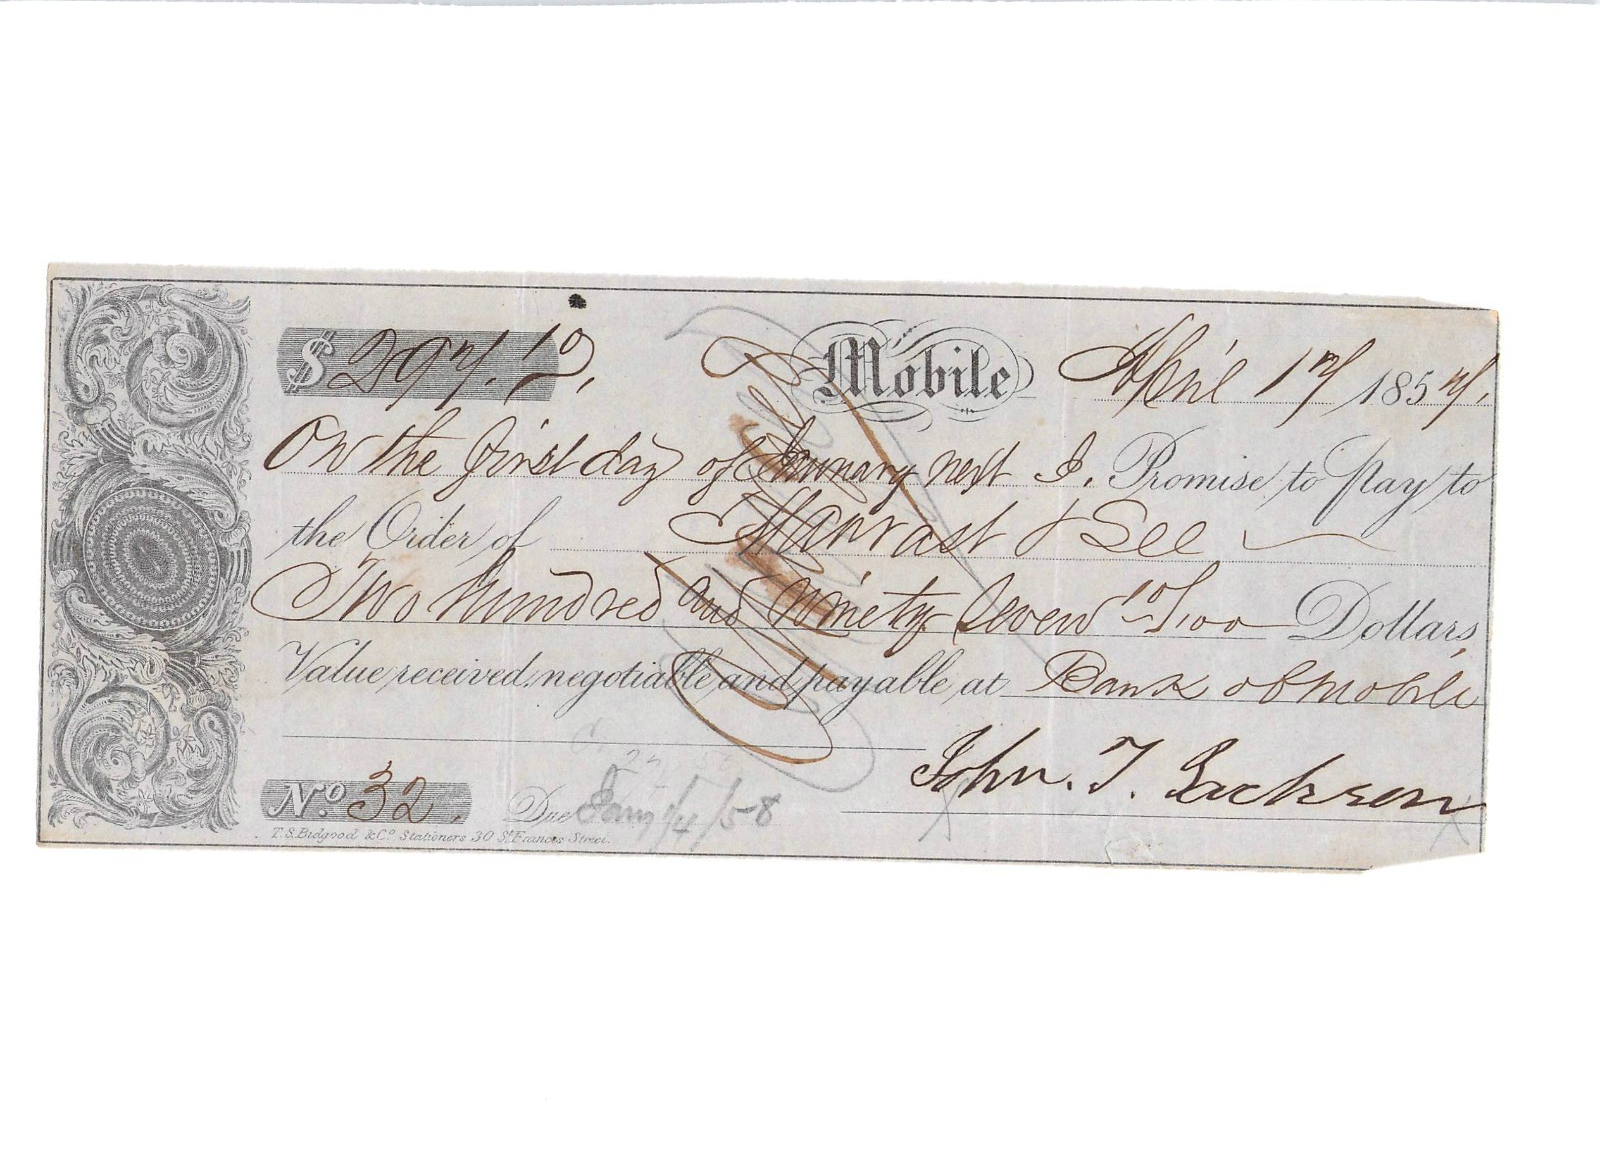 $ 297.10, Mobile April 17 1857.
On the first day of January next I. Promise to pay to
the Order of & Lee
Two Hundred and Ninety Seven 10/100 Dollars,
Value received, negotiable and payable at Bank of Mobile
John. T. Jackson
No. 32. Due Jany 1/4/58
T.S. Bidgood & Co. Stationers 30 St. Francis Street.